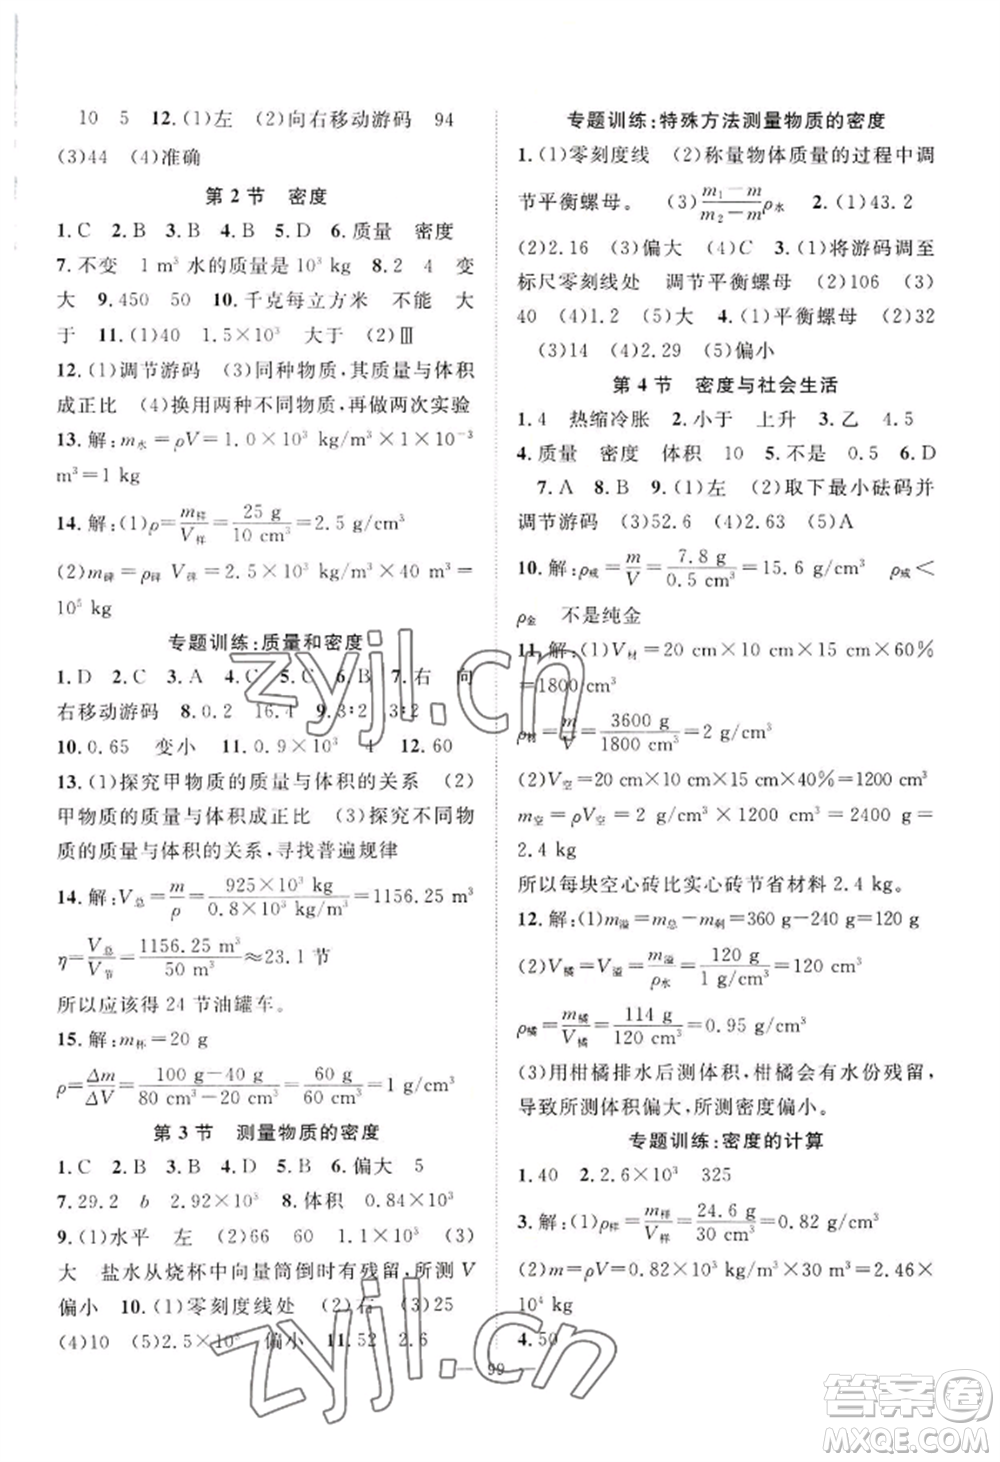 10 5 12.(1)左 (2)向右移动游码 94
(3)44 (4)准确
第2节 密度
1.C 2.B 3.B 4.B 5.D 6.质量 密度
7.不变 1 m³水的质量是10³ kg 8.2 4 变
大 9.450 50 10.千克每立方米 不能 大
于 11.(1)40 1.5×10³ 大于 (2)Ⅲ
12.(1)调节游码 (3)同种物质,其质量与体积
成正比 (4)换用两种不同物质,再做两次实验
13.解:m水=ρV=1.0×10³ kg/m³×1×10⁻³
m³=1 kg
14.解:(1)ρ=m样/V样=25 g/10 cm³=2.5 g/cm³
(2)m碑=ρ碑 V碑=2.5×10³ kg/m³×40 m³=
10⁵ kg
专题训练:质量和密度
1.D 2.C 3.A 4.C 5.C 6.B 7.右 向
右移动游码 8.0.2 16.4 9.3∶2 3∶2
10.0.65 变小 11.0.9×10³ 4 12.60
13.(1)探究甲物质的质量与体积的关系 (2)
甲物质的质量与体积成正比 (3)探究不同物
质的质量与体积的关系,寻找普遍规律
14.解:V总=m/ρ=925×10³ kg/0.8×10³ kg/m³=1156.25 m³
η=V总/V节=1156.25 m³/50 m³≈23.1 节
所以应该得 24 节油罐车。
15.解:m杯=20 g
ρ=Δm/ΔV=100 g-40 g/80 cm³-20 cm³=60 g/60 cm³=1 g/cm³
第3节 测量物质的密度
1.C 2.B 3.B 4.D 5.B 6.偏大 5
7.29.2 b 2.92×10³ 8.体积 0.84×10³
9.(1)水平 左 (2)66 60 (3)
大 盐水从烧杯中向量筒倒时有残留,所测 V
偏小 10.(1)零刻度线处 (2)右 (3)25
(4)10 (5)2.5×10³ 偏小 11.52 2.6
专题训练:特殊方法测量物质的密度
1.(1)零刻度线 (2)称量物体质量的过程中调
节平衡螺母。 (3)m₁-m/m₂-m ρ水 2.(1)43.2
(2)2.16 (3)偏大 (4)C 3.(1)将游码调至
标尺零刻线处 调节平衡螺母 (2)106 (3)
40 (4)1.2 (5)大 4.(1)平衡螺母 (2)32
(3)14 (4)2.29 (5)偏小
第4节 密度与社会生活
1.4 热缩冷胀 2.小于 上升 3.乙 4.5
4.质量 密度 体积 10 5.不是 0.5 6.D
7.A 8.B 9.(1)左 (2)取下最小砝码并
调节游码 (3)52.6 (4)2.63 (5)A
10.解:ρ戒=m/V=7.8 g/0.5 cm³=15.6 g/cm³ ρ戒<
ρ金 不是纯金
11.解:(1)V材=20 cm×10 cm×15 cm×60%
=1800 cm³
ρ材=m/V=3600 g/1800 cm³=2 g/cm³
(2)V空=20 cm×10 cm×15 cm×40%=1200 cm³
m空=ρV空=2 g/cm³×1200 cm³=2400 g=
2.4 kg
所以每块空心砖比实心砖节省材料 2.4 kg。
12.解:(1)m溢=m总-m剩=360 g-240 g=120 g
(2)V橘=V溢=m溢/ρ水=120 g/1 g/cm³=120 cm³
ρ橘=m橘/V橘=114 g/120 cm³=0.95 g/cm³
(3)用柑橘排水后测体积,柑橘会有水份残留,
导致所测体积偏大,所测密度偏小。
专题训练:密度的计算
1.40 2.2.6×10³ 325
3.解:(1)ρ样=m样/V样=24.6 g/30 cm³=0.82 g/cm³
(2)m=ρV=0.82×10³ kg/m³×30 m³=2.46×
10⁴ kg
4.50
99
zyjl.cn
zyjl.cn
答案圈
MXQE.COM